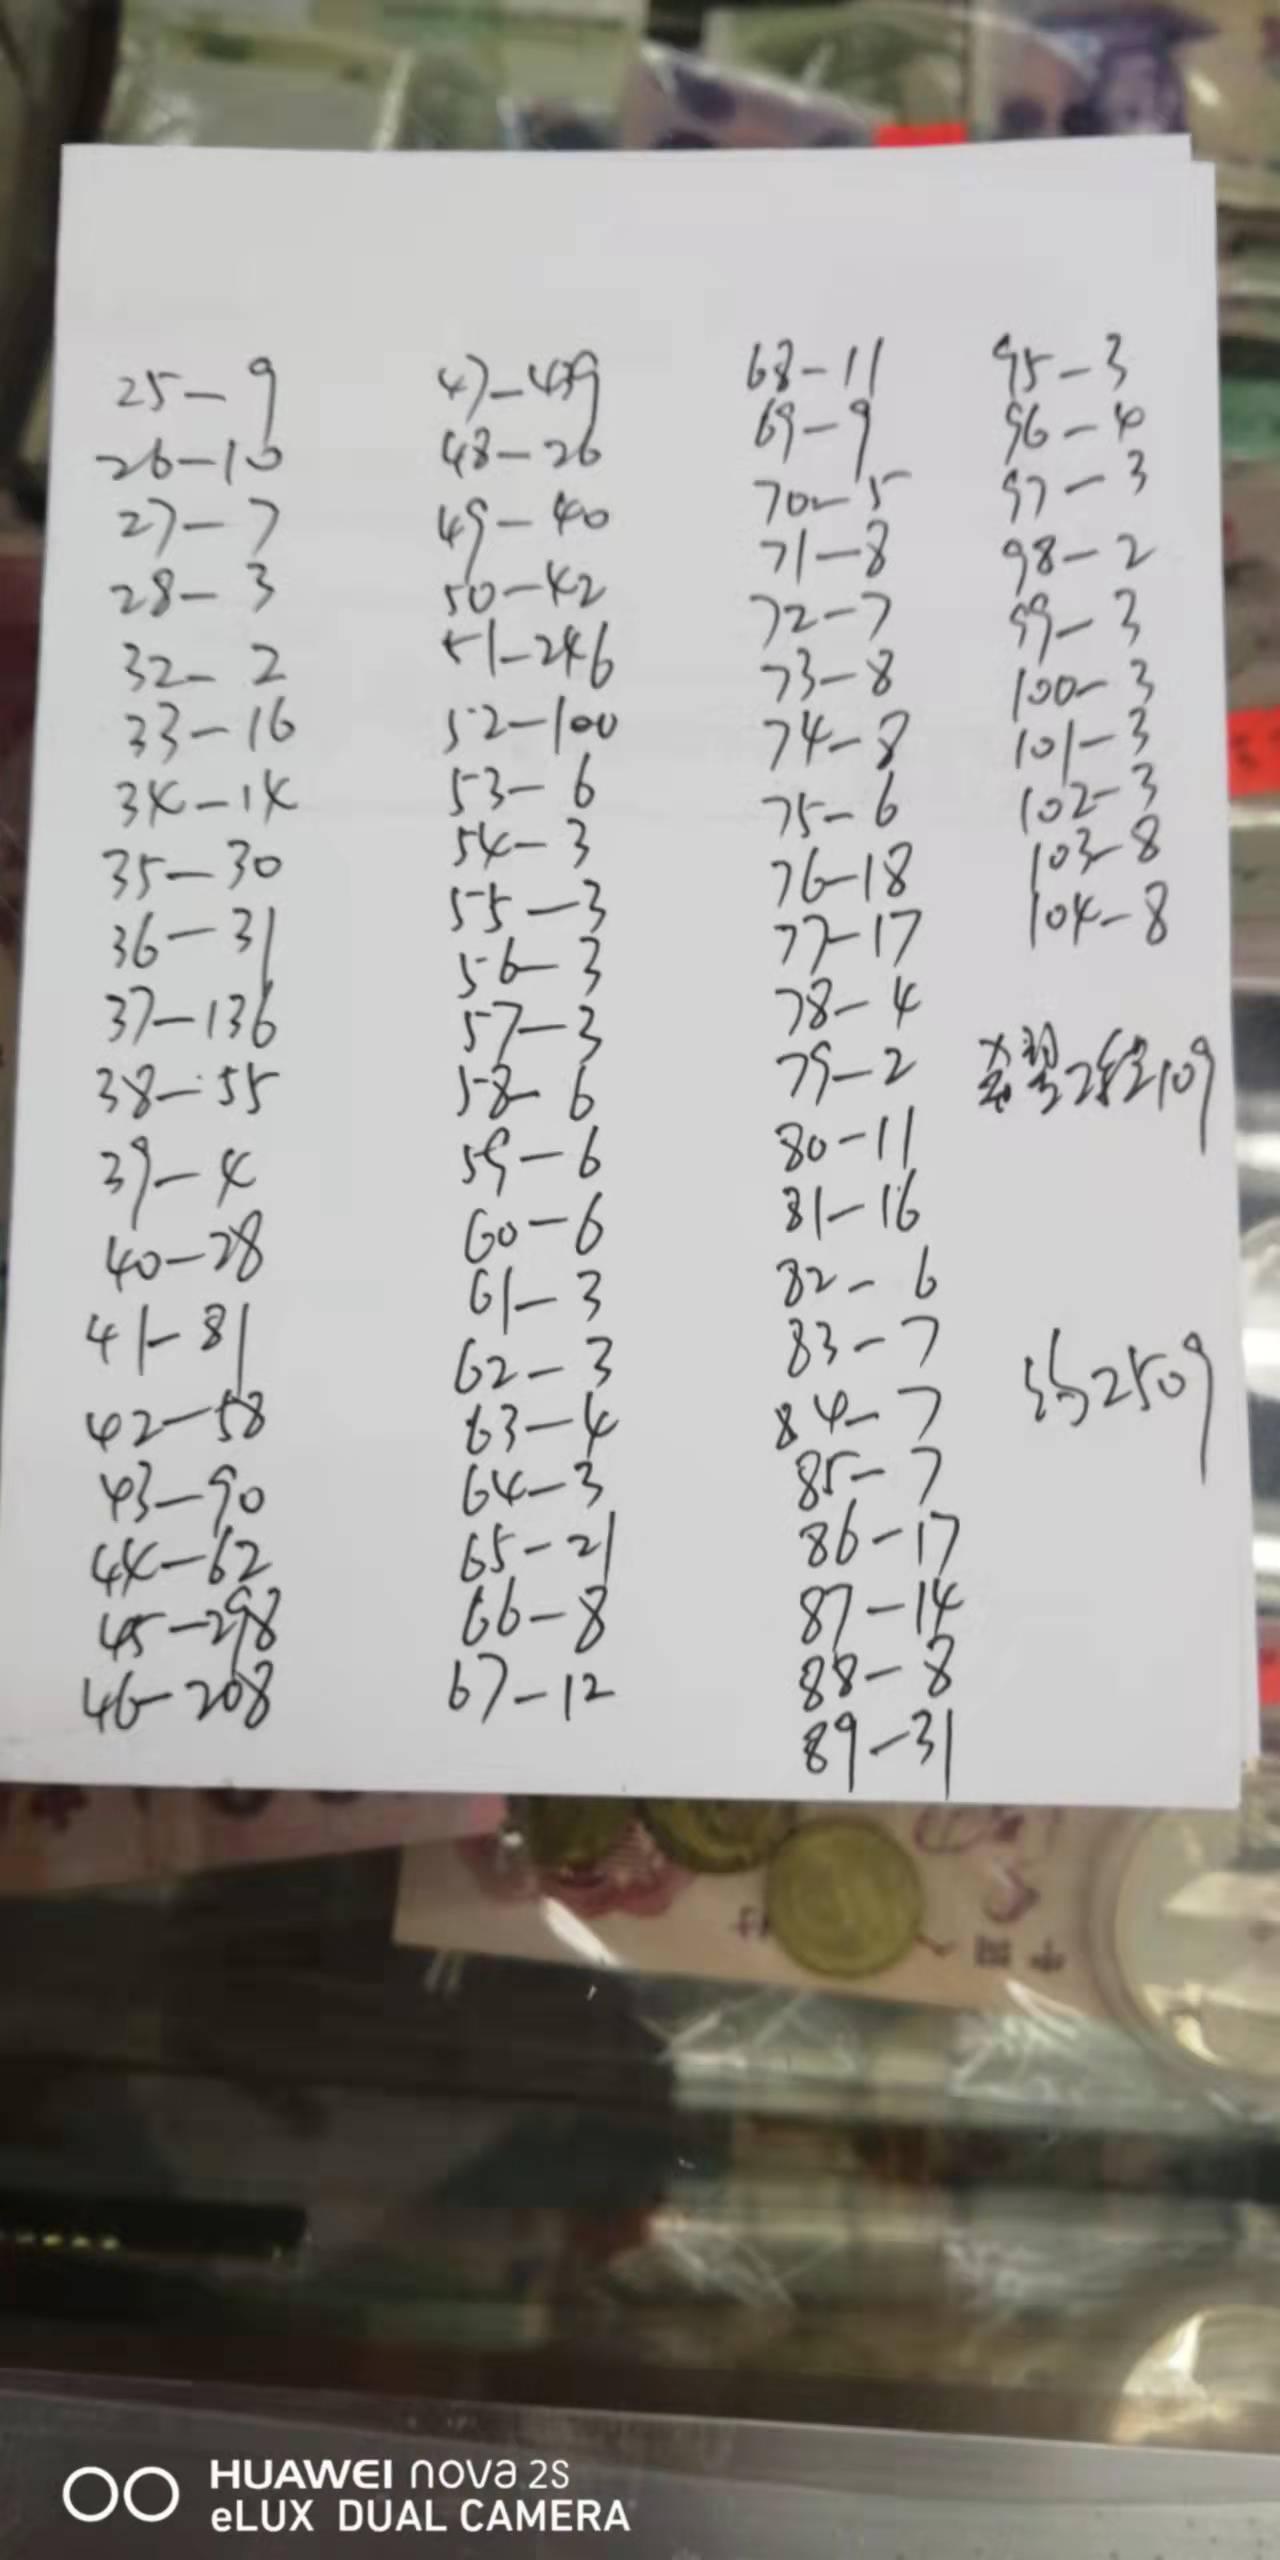 25-9
26-10
27-7
28-3
32-2
33-16
34-14
35-30
36-31
37-136
38-55
39-4
40-28
41-81
42-58
43-90
44-62
45-298
46-208
47-439
48-26
49-40
50-42
51-246
52-100
53-6
54-3
55-3
56-3
57-3
58-6
59-6
60-6
61-3
62-3
63-4
64-3
65-21
66-8
67-12
68-11
69-9
70-5
71-8
72-7
73-8
74-8
75-6
76-18
77-17
78-4
79-2
80-11
81-16
82-6
83-7
84-7
85-7
86-17
87-14
88-8
89-31
95-3
96-4
97-3
98-2
99-3
100-3
101-3
102-3
103-8
104-8
2509
HUAWEI nova 2s
eLUX DUAL CAMERA